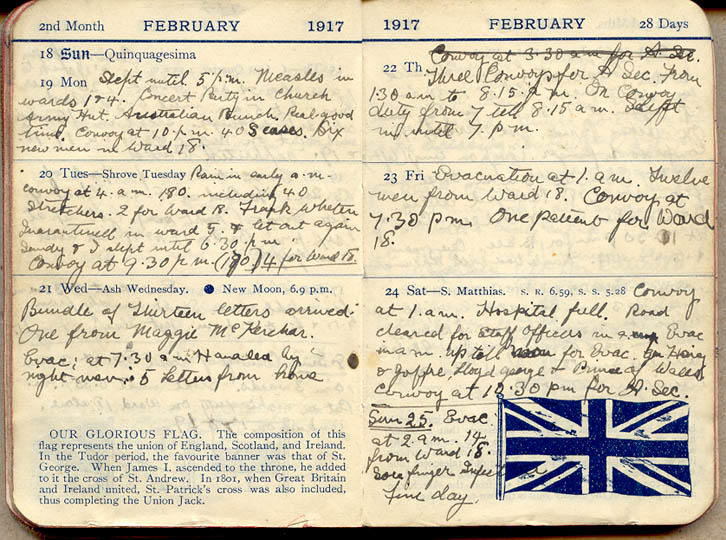 2nd Month FEBRUARY 1917
18 Sun—Quinquagesima
19 Mon Slept until 5 p.m. Measles in
wards 1 & 4. Concert Party in Church
Army Hut. Australian Bunch. Real good
time. Convoy at 10 p.m. 40 cases. Six
new men in Ward 18.
20 Tues—Shrove Tuesday Rain in early a.m.
convoy at 4 a.m. 180. including 40
Stretchers. 2 for Ward 18. Frank Wheten
Quarantined in ward 5. & let out again
Sandy & I slept until 6.30 p.m.
Convoy at 9.30 p.m. (170) 4 for Ward 18.
21 Wed—Ash Wednesday. New Moon, 6.9 p.m.
Bundle of Thirteen letters arrived.
One from Maggie McKerchar.
Evac: at 7.30 a.m. Handled by
night men. 5 Letters from home
OUR GLORIOUS FLAG. The composition of this
flag represents the union of England, Scotland, and Ireland.
In the Tudor period, the favourite banner was that of St.
George. When James I. ascended to the throne, he added
to it the cross of St. Andrew. In 1801, when Great Britain
and Ireland united, St. Patrick's cross was also included,
thus completing the Union Jack.
1917 FEBRUARY 28 Days
Convoy at 3.30 a.m. for A. Sec.
22 Th Three Convoys for A Sec. From
1.30 am to 8.15 p.m. On Convoy
duty from 7 till 8.15 a.m. Slept
in until 7. p.m.
23 Fri Evacuation at 1. a.m. Twelve
men from Ward 18. Convoy at
7.30 p.m. One patient for Ward
18.
24 Sat—S. Matthias. S. R. 6.59, S. S. 5.28 Convoy
at 1 a.m. Hospital full. Road
cleared for staff officers in Evac
in a.m. up till for Evac. Haig
& Joffre, Lloyd George & Prince of Wales
Convoy at 12.30 pm for A. Sec.
Sun 25. Evac.
at 2 a.m. 14
from Ward 18.
Sore finger
Fine day.